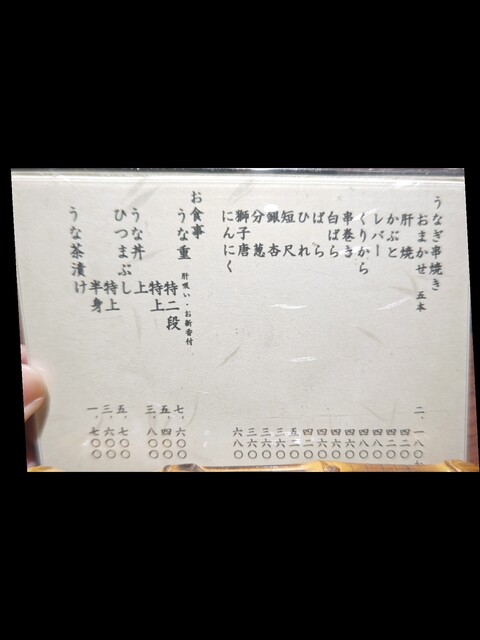 うなぎ串焼き
おまかせ 五本 二、一八〇
肝焼 四二〇
かぶと 四二〇
レバー 八八〇
くりから 四八〇
串巻き 四六〇
白ばら 四六〇
ばら 四六〇
ひれ 四二〇
短尺 五二〇
銀杏 三六〇
分葱 三六〇
獅子唐 三六〇
にんにく 六八〇
お食事
うな重 肝吸い・お新香付
特二段 七、六〇〇
特上 五、四〇〇
うな丼 上 三、八〇〇
ひつまぶし 五、七〇〇
特上 三、六〇〇
半身 一、七〇〇
うな茶漬け